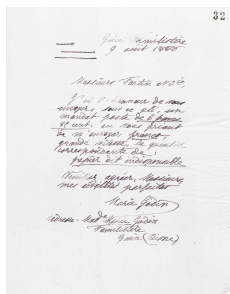 32
Guise Familistère
9 août 1888
Messieurs Fortin & Cie,
J'ai l'honneur de vous
envoyer, sous ce pli, un
mandat poste de
cent. en vous priant
de m'envoyer franco,
grande vitesse, la quantité
correspondante de
papier dit indispensable
Veuillez agréer, Messieurs,
mes civilités parfaites
Marie Godin
adresse: Mad. Marie Godin
Familistère
Guise (Aisne)